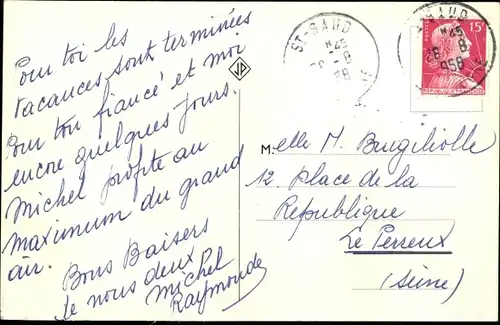 Pour toi les
vacances sont terminées
Pour ton fiancé et moi
encore quelques jours.
Michel profite au
maximum du grand
air.
Bons Baisers
de nous deux
Michel
Raymonde
JP
ST-GAUD
H45
-8
58
GAUD
H45
28 8
958
15F
REPUBLIQUE FRANCAISE
M.elle M.
12. Place de la
Republique
Le Perreux
(Seine)